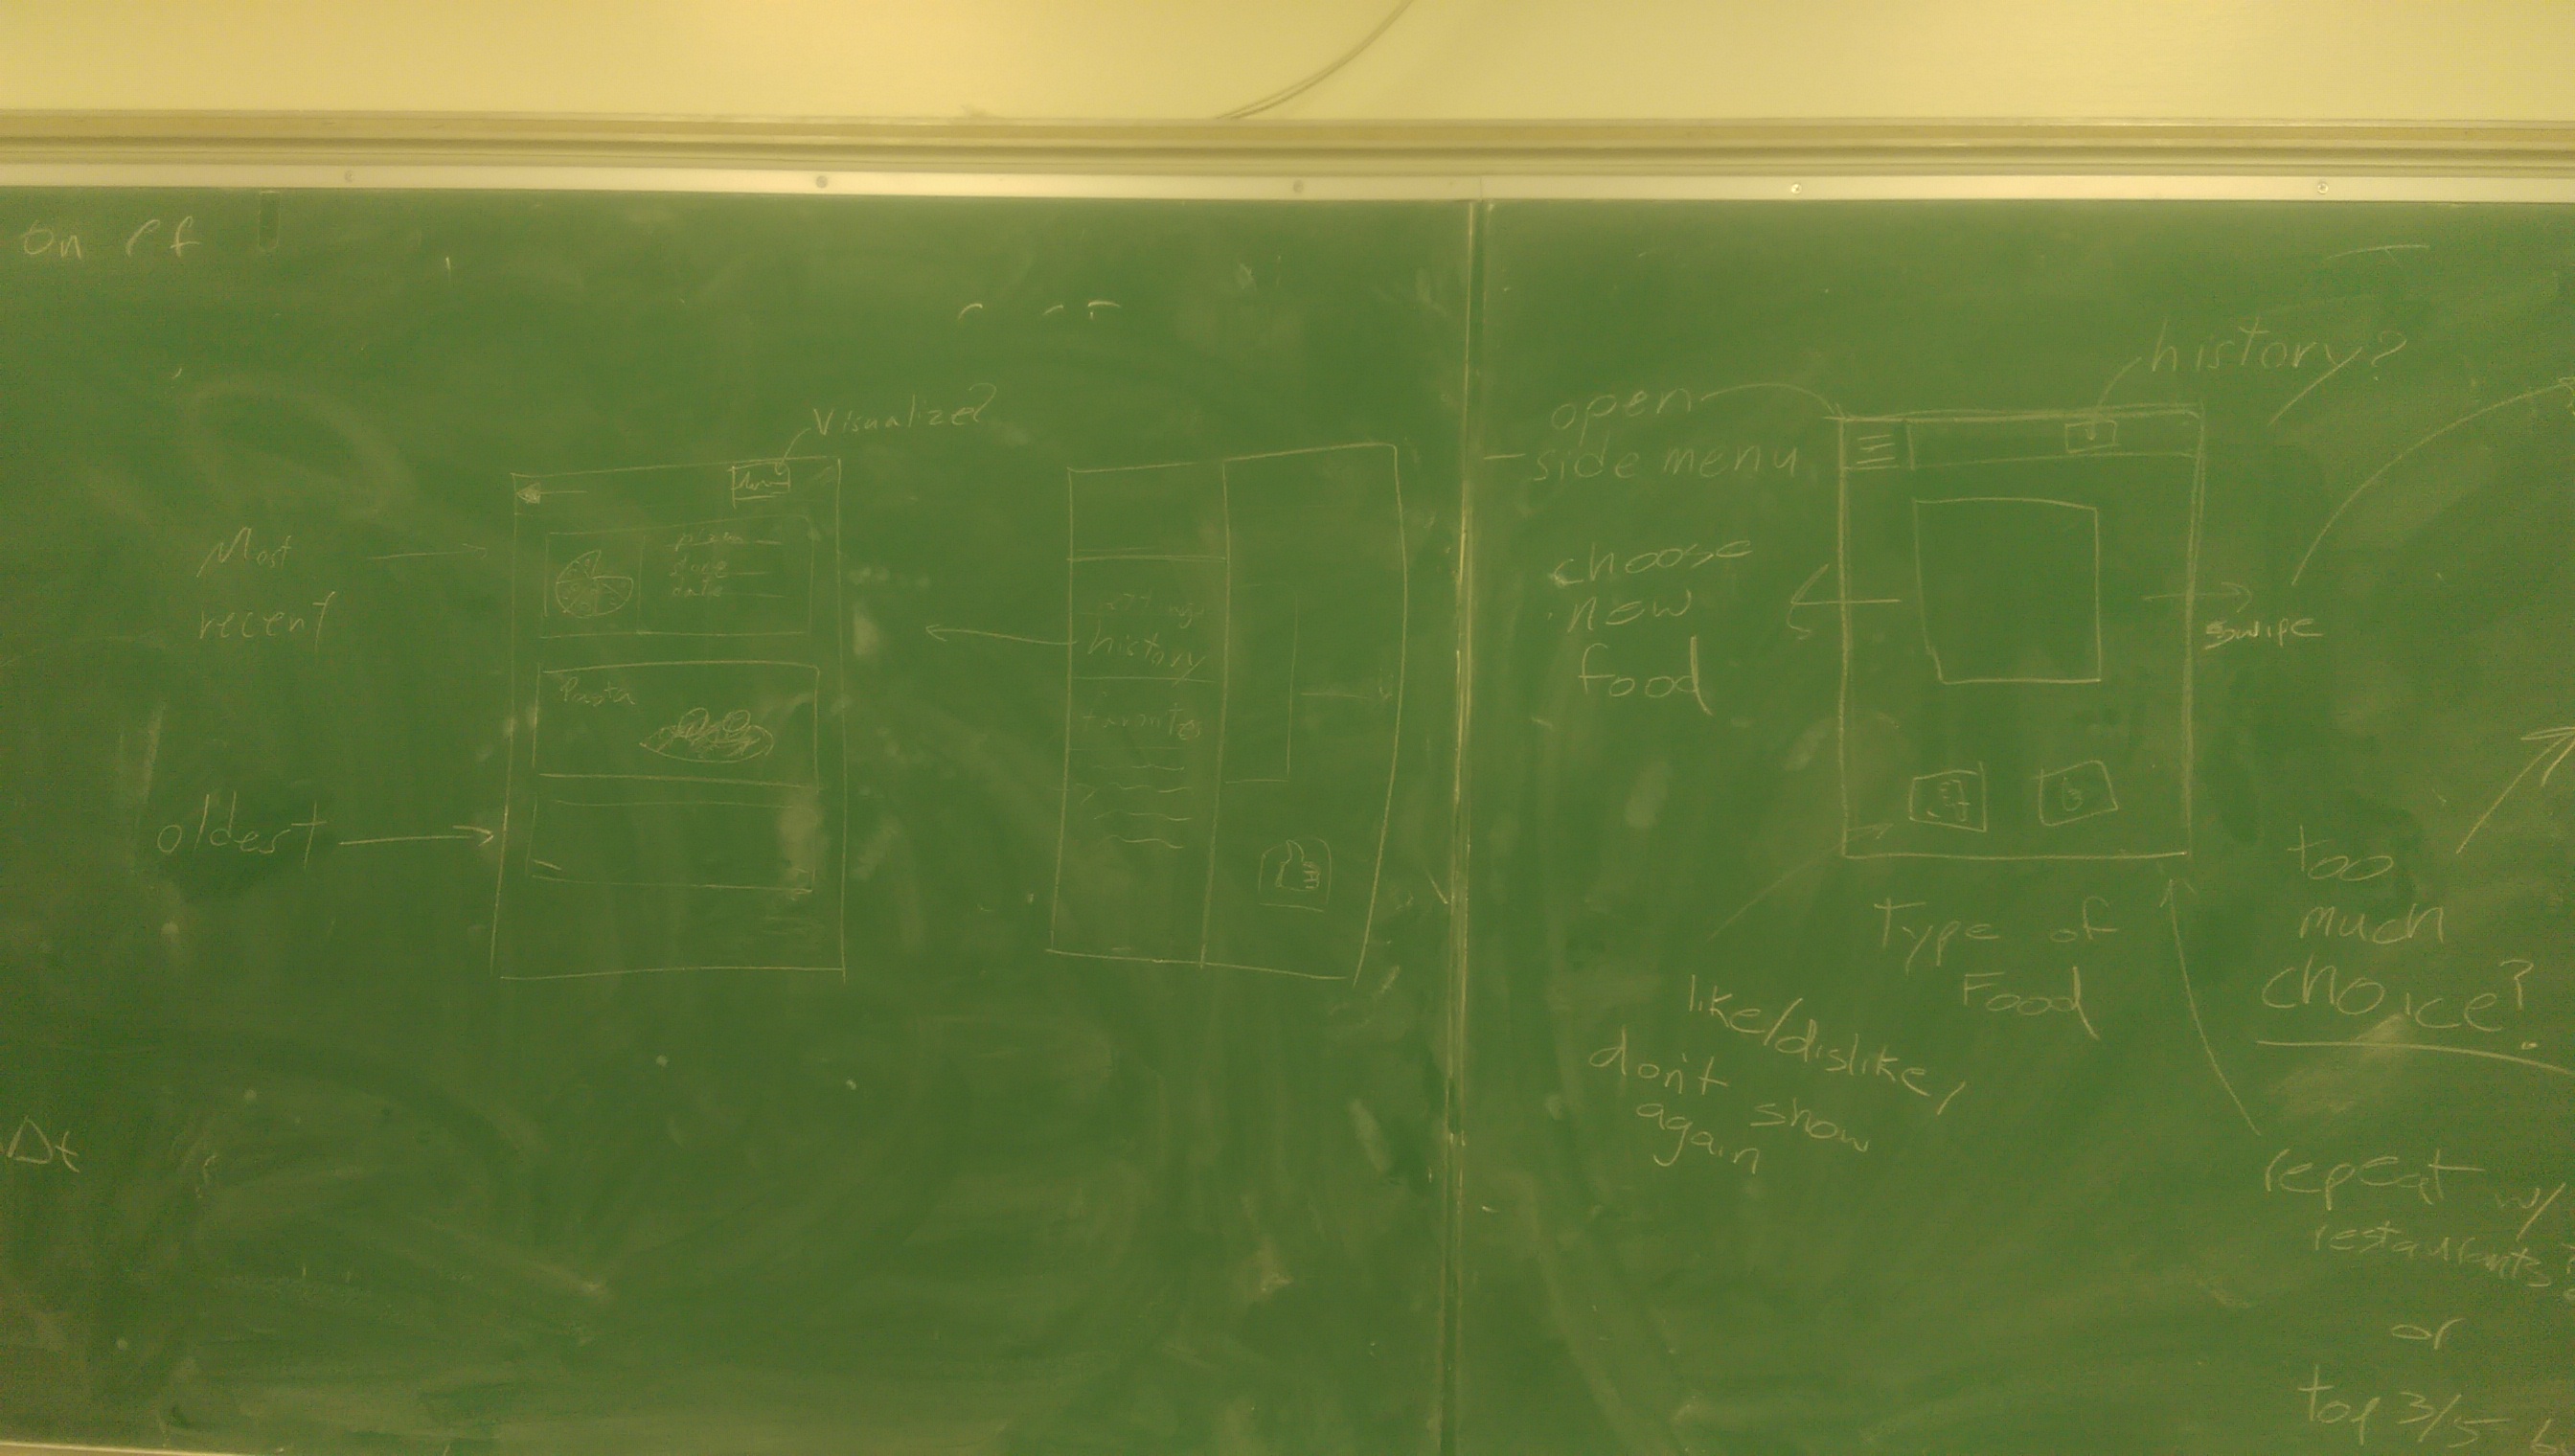 on
Visualize?
Most
recent
oldest
Pasta
date
history
favorites
Δt
open
side menu
history?
choose
new
food
swipe
Type of
Food
like/dislike,
don't show
again
too
much
choice?
repeat w/
restaurants
or
top 3/5